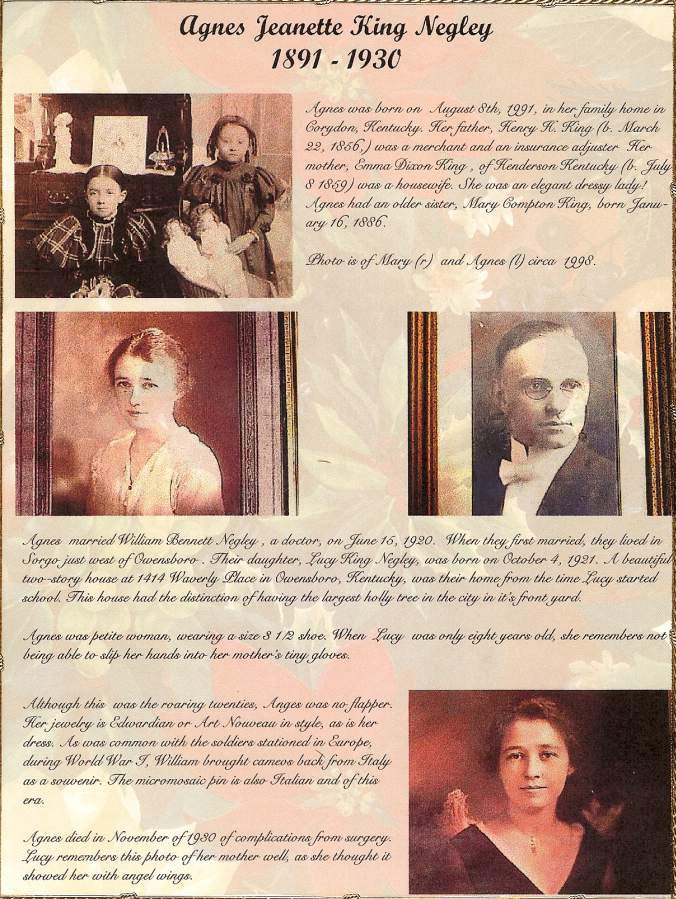 Agnes Jeanette King Negley
1891 - 1930
Agnes was born on August 8th, 1991, in her family home in
Corydon, Kentucky. Her father, Henry H. King (b. March
22, 1856,) was a merchant and an insurance adjuster Her
mother, Emma Dixon King , of Henderson Kentucky (b. July
8 1859) was a housewife. She was an elegant dressy lady!
Agnes had an older sister, Mary Compton King, born Janu-
ary 16, 1886.
Photo is of Mary (r) and Agnes (l) circa 1998.
Agnes married William Bennett Negley , a doctor, on June 15, 1920. When they first married, they lived in
Sorgo just west of Owensboro . Their daughter, Lucy King Negley, was born on October 4, 1921. A beautiful
two-story house at 1414 Waverly Place in Owensboro, Kentucky, was their home from the time Lucy started
school. This house had the distinction of having the largest holly tree in the city in it's front yard.
Agnes was petite woman, wearing a size 3 1/2 shoe. When Lucy was only eight years old, she remembers not
being able to slip her hands into her mother's tiny gloves.
Although this was the roaring twenties, Anges was no flapper.
Her jewelry is Edwardian or Art Nouveau in style, as is her
dress. As was common with the soldiers stationed in Europe,
during World War I, William brought cameos back from Italy
as a souvenir. The micromosaic pin is also Italian and of this
era.
Agnes died in November of 1930 of complications from surgery.
Lucy remembers this photo of her mother well, as she thought it
showed her with angel wings.